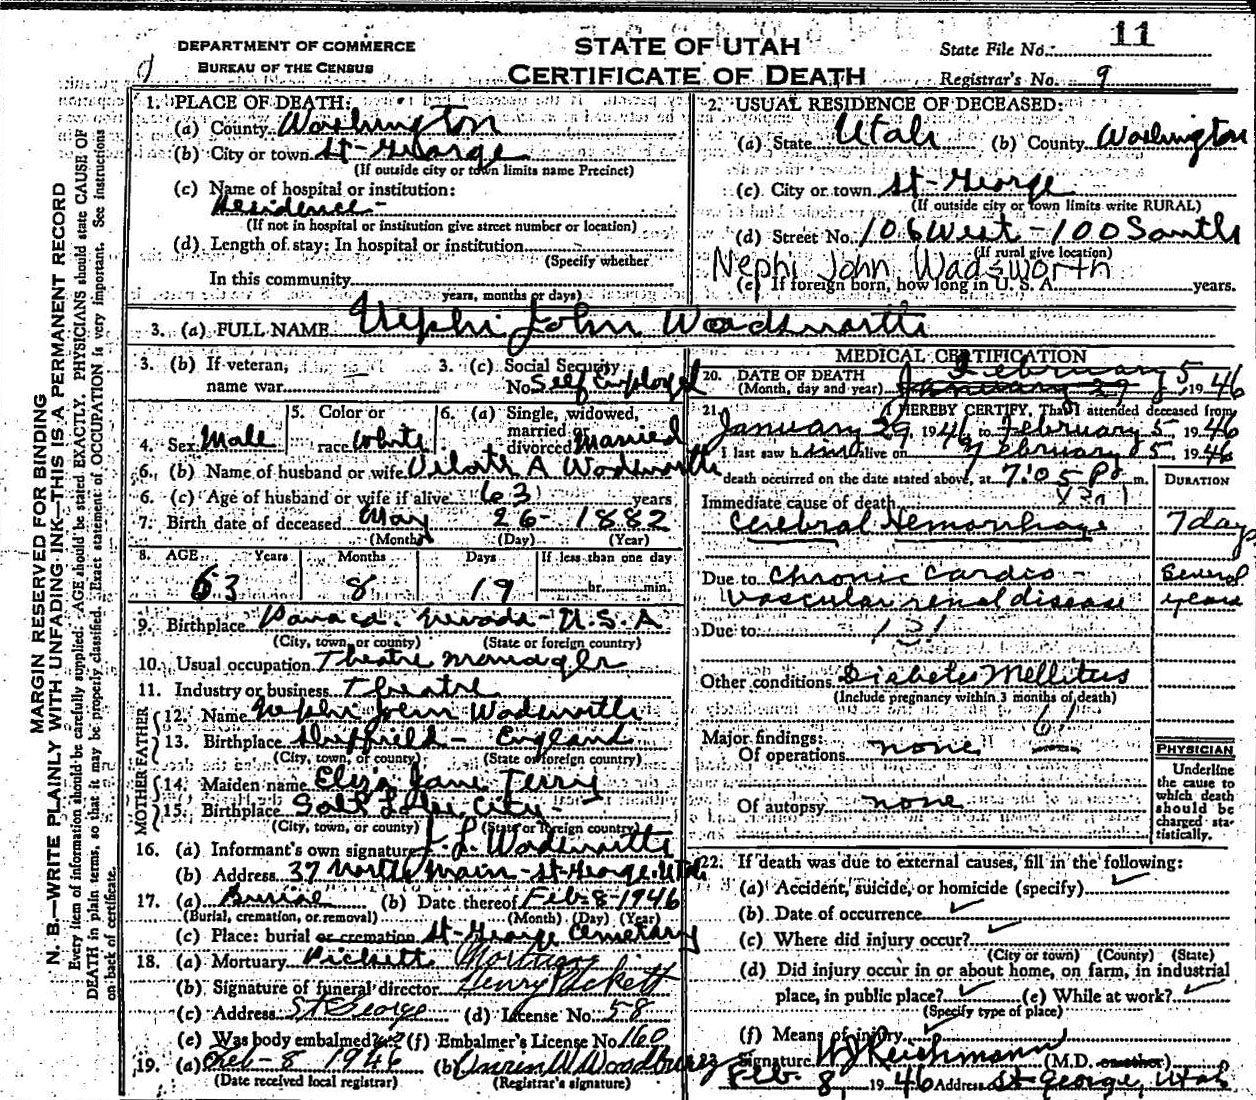 11
DEPARTMENT OF COMMERCE
BUREAU OF THE CENSUS
STATE OF UTAH
CERTIFICATE OF DEATH
State File No.
Registrar's No. 9
MARGIN RESERVED FOR BINDING
N. B.—WRITE PLAINLY WITH UNFADING INK—THIS IS A PERMANENT RECORD
Every item of information should be carefully supplied. AGE should be stated EXACTLY. PHYSICIANS should state CAUSE OF
DEATH in plain terms, so that it may be properly classified. Exact statement of OCCUPATION is very important. See instructions
on back of certificate.
1. PLACE OF DEATH:
(a) County Washington
(b) City or town St-George
(If outside city or town limits name Precinct)
(c) Name of hospital or institution:
Residence-
(If not in hospital or institution give street number or location)
(d) Length of stay: In hospital or institution
(Specify whether
In this community
years, months or days)
2. USUAL RESIDENCE OF DECEASED:
(a) State Utah (b) County Washington
(c) City or town St-George
(If outside city or town limits write RURAL)
(d) Street No. 106 West-100 South
(If rural give location)
Nephi John Wadsworth
(e) If foreign born, how long in U. S. A. years.
3. (a) FULL NAME Nephi John Wadsworth
3. (b) If veteran, name war
3. (c) Social Security No. Self Employed
4. Sex Male
5. Color or race White
6. (a) Single, widowed, married or divorced Married
6. (b) Name of husband or wife A Wadsworth
6. (c) Age of husband or wife if alive 63 years
7. Birth date of deceased May 26- 1882
(Month) (Day) (Year)
8. AGE Years Months Days If less than one day
63 8 19 hr. min.
9. Birthplace Panaca. Nevada-U.S.A
(City, town, or county) (State or foreign country)
10. Usual occupation Theatre manager
11. Industry or business Theatre
FATHER
12. Name Nephi John Wadsworth
13. Birthplace Sheffield- England
(City, town, or county) (State or foreign country)
MOTHER
14. Maiden name Eliza Jane Terry
15. Birthplace Salt Lake City-
(City, town, or county) (State or foreign country)
16. (a) Informant's own signature L. Wadsworth
(b) Address 37 North Main-St-George-Utah
17. (a) Burial (b) Date thereof Feb-8-1946
(Burial, cremation, or removal) (Month) (Day) (Year)
(c) Place: burial or cremation St-George Cemetary
18. (a) Mortuary Pickett Mortuary
(b) Signature of funeral director Henry Pickett
(c) Address St George (d) License No. 58
(e) Was body embalmed? (f) Embalmer's License No. 160
19. (a) Feb-8 1946 (b) W Woodbury
(Date received local registrar) (Registrar's signature)
MEDICAL CERTIFICATION
20. DATE OF DEATH February 5
(Month, day and year) January 29, 1946
21. I HEREBY CERTIFY, That I attended deceased from
January 29, 1946 to February 5 1946
I last saw him alive on February 5, 1946
death occurred on the date stated above, at 7:05 P. m.
DURATION
Immediate cause of death
Cerebral Hemorrhage 7 days
Due to Chronic cardio- Several
vascular renal disease years
Due to 131
Other conditions Diabetes Mellitus
(Include pregnancy within 3 months of death)
61
Major findings:
Of operations none
Of autopsy none
PHYSICIAN
Underline
the cause to
which death
should be
charged sta-
tistically.
22. If death was due to external causes, fill in the following:
(a) Accident, suicide, or homicide (specify)
(b) Date of occurrence
(c) Where did injury occur?
(City or town) (County) (State)
(d) Did injury occur in or about home, on farm, in industrial
place, in public place? (e) While at work?
(Specify type of place)
(f) Means of injury
Signature Reichmann (M.D. or other)
Feb. 8, 1946 Address St George, Utah